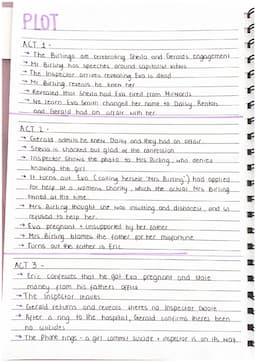 PLOT
ACT 1 -
→ The Birlings are celebrating Sheila and Gerald's engagement
→ Mr Birling has speeches around capitalist views
→ The Inspector arrives revealing Eva is dead
→ Mr Birling reveals he knew her
→ Revealed that Sheila had Eva fired from Milwards
→ We learn Eva Smith changed her name to Daisy Renton
and Gerald had an affair with her
ACT 2 -
→ Gerald admits he knew Daisy and they had an affair
→ Sheila is shocked but glad of the confession
→ Inspector shows the photo to Mrs Birling, who denies
knowing the girl
→ It turns out Eva (calling herself 'Mrs Birling') had applied
for help at a womens charity, which the actual Mrs Birling
at the time
→ Mrs Birling thought she was insulting and dishonest, and so
refused to help her
→ Eva pregnant + unsupported by her father
→ Mrs Birling blames the father for her misfortune
→ Turns out the father is Eric
ACT 3 -
→ Eric confesses that he got Eva pregnant and stole
money from his father's office
→ The Inspector leaves
→ Gerald returns and reveals there's no Inspector Goole
→ After a ring to the hospital, Gerald confirms there's been
no suicides
→ The phone rings - a girl commit suicide + inspector is on its way